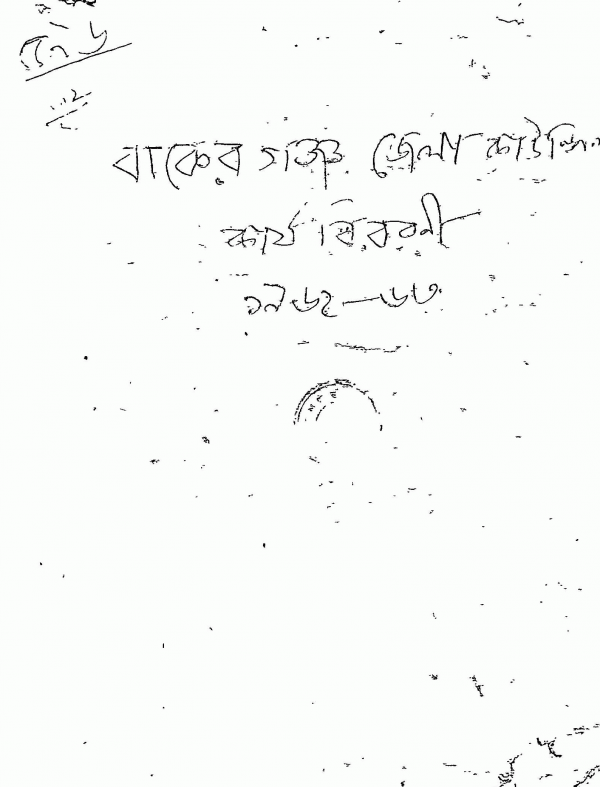 বাকের গঞ্জ জেলা কাউন্সিল
কার্য বিবরণী
১৯৬২-৬৩